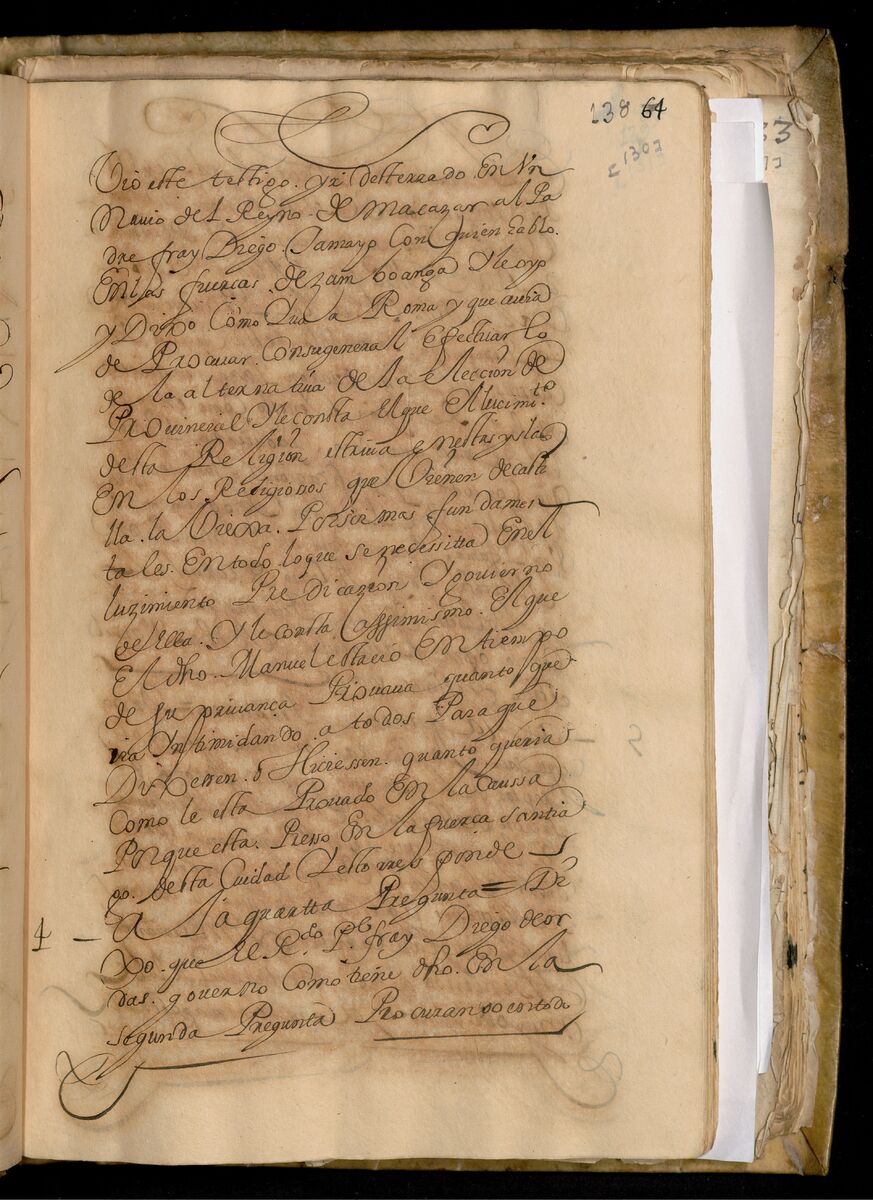 138 64
[1302
Vio este testigo. yr desterrado En Vn
Nauio del Reyno de Macazar al Pa
dre fray Diego Tamayo Con quien hablo.
En las fuerças de Zamboanga Y le oyo
y Dixo Como Yua a Roma y que auia
de Procurar Con su general Efectuar lo
de la alternatiua de la elección de
Prouincial Y le consta El que El lucimito
desta Religión estriua en estas yslas
En los Religiossos que Vienen de casti
lla la Viexa. Por ser mas fundamen
tales En todo lo que se necessitta En el
luzimiento Predicazion Y gouierno
de Ella. Y le consta assimismo El que
El dho. Manuel estacio En tiempo
de su priuança Prouaua quanto que
ria Yntimidando a todos Para que
Dixessen ó Hiciessen quanto queria
Como le esta Prouado En la Caussa
Porque esta Presso En la fuerça Santia
go. desta Ciudad Y esto rresponde
4 - A la quartta Pregunta = Di
Xo. que el Rdo. Pe. fray Diego de or
das. gouerno Como tiene dho. En la
segunda Pregunta Procurando con todo